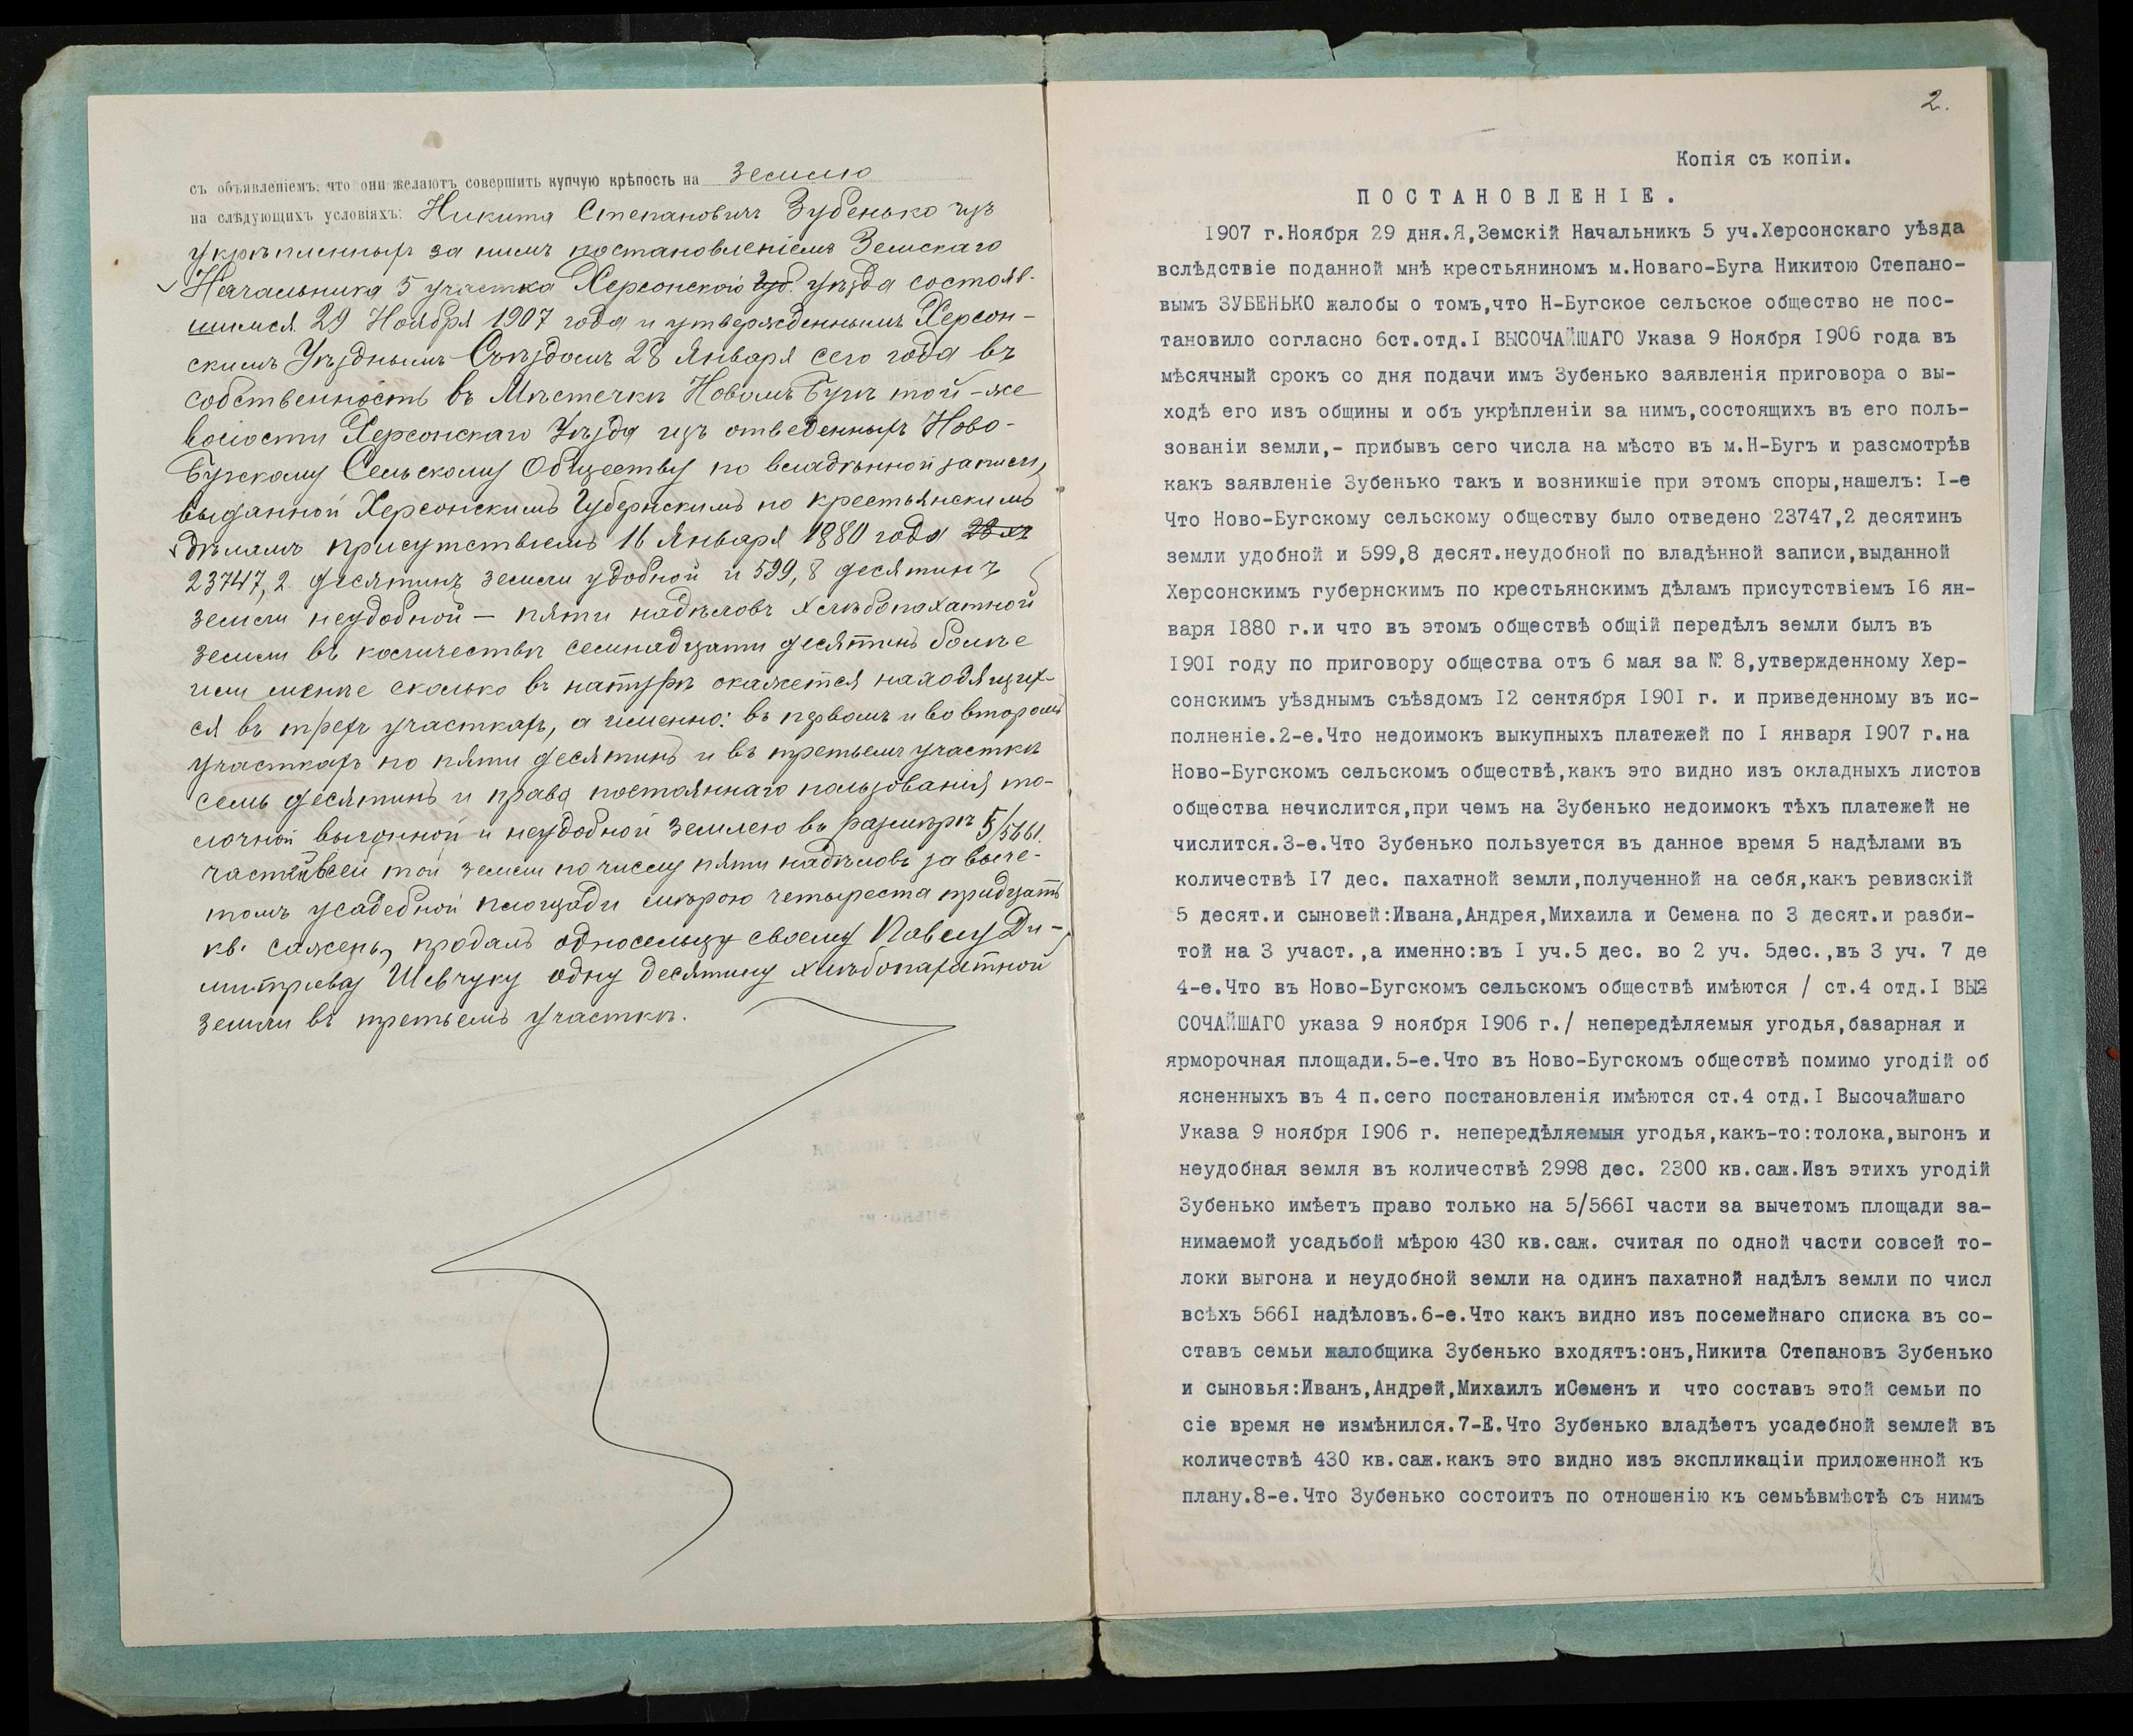 съ объявленіемъ, что они желаютъ совершить купчую крѣпость на землю
на слѣдующихъ условіяхъ: Никита Степановичъ Зубенько изъ
укрѣпленныхъ за нимъ постановленіемъ Земскаго
Начальника 5 участка Херсонского Губ. уѣзда состояв-
шимся 29 Ноября 1907 года и утвержденнымъ Херсон-
скимъ Уѣзднымъ Съѣздомъ 28 Января сего года въ
собственность въ Мѣстечкѣ Новомъ Бугѣ той-же
волости Херсонскаго Уѣзда изъ отведенныхъ Ново-
Бугскому Сельскому Обществу по владѣнной записи,
выданной Херсонскимъ Губернскимъ по крестьянскимъ
дѣламъ присутствіемъ 16 Января 1880 года
23747,2 десятинъ земли удобной и 599,8 десятинъ
земли неудобной — пяти надѣловъ хлѣбопахатной
земли въ количествѣ семнадцати десятинъ болѣе
или менѣе сколько въ натурѣ окажется находящих-
ся въ трехъ участкахъ, а именно: въ первомъ и во второмъ
участкахъ по пяти десятинъ и въ третьемъ участкѣ
семь десятинъ и права постояннаго пользованія то-
лочной выгонной и неудобной землею въ размѣрѣ 5/5661
части всей той земли по числу пяти надѣловъ за выче-
томъ усадебной площади мѣрою четыреста тридцать
кв. сажень, продалъ односельцу своему Павлу Ди-
митріеву Шевчуку одну десятину хлѣбопахатной
земли въ третьемъ участкѣ.
2.
Копія съ копіи.
ПОСТАНОВЛЕНІЕ.
1907 г.Ноября 29 дня.Я,Земскій Начальникъ 5 уч.Херсонскаго уѣзда
вслѣдствіе поданной мнѣ крестьяниномъ м.Новаго-Буга Никитою Степано-
вымъ ЗУБЕНЬКО жалобы о томъ,что Н-Бугское сельское общество не пос-
тановило согласно 6ст.отд.I ВЫСОЧАЙШАГО Указа 9 Ноября 1906 года въ
мѣсячный срокъ со дня подачи имъ Зубенько заявленія приговора о вы-
ходѣ его изъ общины и объ укрѣпленіи за нимъ,состоящихъ въ его поль-
зованіи земли,- прибывъ сего числа на мѣсто въ м.Н-Бугъ и разсмотрѣв
какъ заявленіе Зубенько такъ и возникшіе при этомъ споры,нашелъ: I-е
Что Ново-Бугскому сельскому обществу было отведено 23747,2 десятинъ
земли удобной и 599,8 десят.неудобной по владѣнной записи,выданной
Херсонскимъ губернскимъ по крестьянскимъ дѣламъ присутствіемъ 16 ян-
варя 1880 г.и что въ этомъ обществѣ общій передѣлъ земли былъ въ
1901 году по приговору общества отъ 6 мая за № 8,утвержденному Хер-
сонскимъ уѣзднымъ съѣздомъ 12 сентября 1901 г. и приведенному въ ис-
полненіе.2-е.Что недоимокъ выкупныхъ платежей по I января 1907 г.на
Ново-Бугскомъ сельскомъ обществѣ,какъ это видно изъ окладныхъ листов
общества нечислится,при чемъ на Зубенько недоимокъ тѣхъ платежей не
числится.3-е.Что Зубенько пользуется въ данное время 5 надѣлами въ
количествѣ 17 дес. пахатной земли,полученной на себя,какъ ревизскій
5 десят.и сыновей:Ивана,Андрея,Михаила и Семена по 3 десят.и разби-
той на 3 участ.,а именно:въ I уч.5 дес. во 2 уч. 5дес.,въ 3 уч. 7 де
4-е.Что въ Ново-Бугскомъ сельскомъ обществѣ имѣются / ст.4 отд.I ВЫ
СОЧАЙШАГО указа 9 ноября 1906 г./ непередѣляемыя угодья,базарная и
ярморочная площади.5-е.Что въ Ново-Бугскомъ обществѣ помимо угодій об
ясненныхъ въ 4 п.сего постановленія имѣются ст.4 отд.I Высочайшаго
Указа 9 ноября 1906 г. непередѣляемыя угодья,какъ-то:толока,выгонъ и
неудобная земля въ количествѣ 2998 дес. 2300 кв.саж.Изъ этихъ угодій
Зубенько имѣетъ право только на 5/5661 части за вычетомъ площади за-
нимаемой усадьбой мѣрою 430 кв.саж. считая по одной части совсей то-
локи выгона и неудобной земли на одинъ пахатной надѣлъ земли по числ
всѣхъ 5661 надѣловъ.6-е.Что какъ видно изъ посемейнаго списка въ со-
ставъ семьи жалобщика Зубенько входятъ:онъ,Никита Степановъ Зубенько
и сыновья:Иванъ,Андрей,Михаилъ иСеменъ и что составъ этой семьи по
сіе время не измѣнился.7-Е.Что Зубенько владѣетъ усадебной землей въ
количествѣ 430 кв.саж.какъ это видно изъ экспликаціи приложенной къ
плану.8-е.Что Зубенько состоитъ по отношенію къ семьѣвмѣстѣ съ нимъ